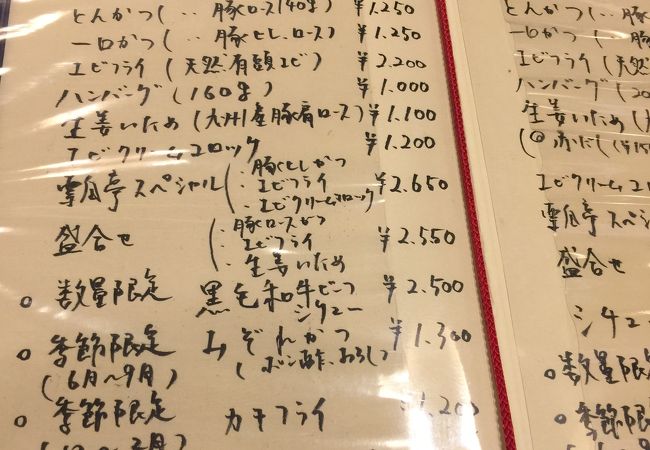 とんかつ (‥ 豚ロース140g) ¥1.250
一口かつ (‥ 豚ヒレ、ロース) ¥1.250
エビフライ (天然有頭エビ) ¥2.200
ハンバーグ (160g) ¥1.000
生姜いため (九州産豚肩ロース) ¥1.100
エビクリームコロッケ ¥1.200
雲月亭スペシャル ¥2.650
・豚ヒレかつ
・エビフライ
・エビクリームコロッケ
盛合せ ¥2.550
・豚ロースかつ
・エビフライ
・生姜いため
○ 数量限定 黒毛和牛ビーフシチュー ¥2.500
○ 季節限定 みぞれかつ ¥1.300
(6月〜9月) (ポン酢、おろし)
○ 季節限定 カキフライ ¥1.200
とんかつ (‥
一口かつ (‥ 豚
エビフライ (天然
ハンバーグ (20
生姜いため (
赤だし
エビクリームコ
雲月亭スペ
盛合せ
シチュー
○ 数量限
○ 季節限